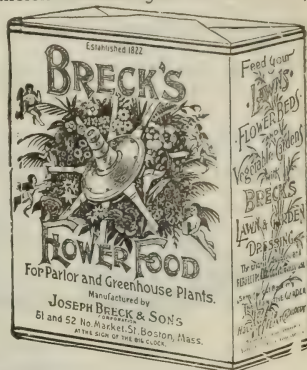 Established 1822
BRECK'S
FLOWER FOOD
For Parlor and Greenhouse Plants.
Manufactured by
JOSEPH BRECK & SONS
CORPORATION
51 and 52 No. Market. St. Boston, Mass.
AT THE SIGN OF THE BIG CLOCK.
Feed your
LAWNS
FLOWER BEDS
and
Vegetable Gardens
with
BRECK'S
LAWN & GARDEN
DRESSING